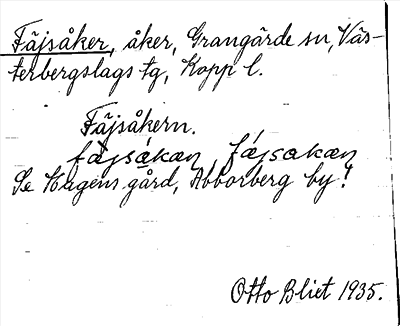 Fäjsåker, åker, Grangärde sn, Väs-
terbergslags tg, Kopp l.
Fäjsåkern.
fäjsakan, fäjsakan
Se Hagens gård, Abborberg by!
Otto Blixt 1935.